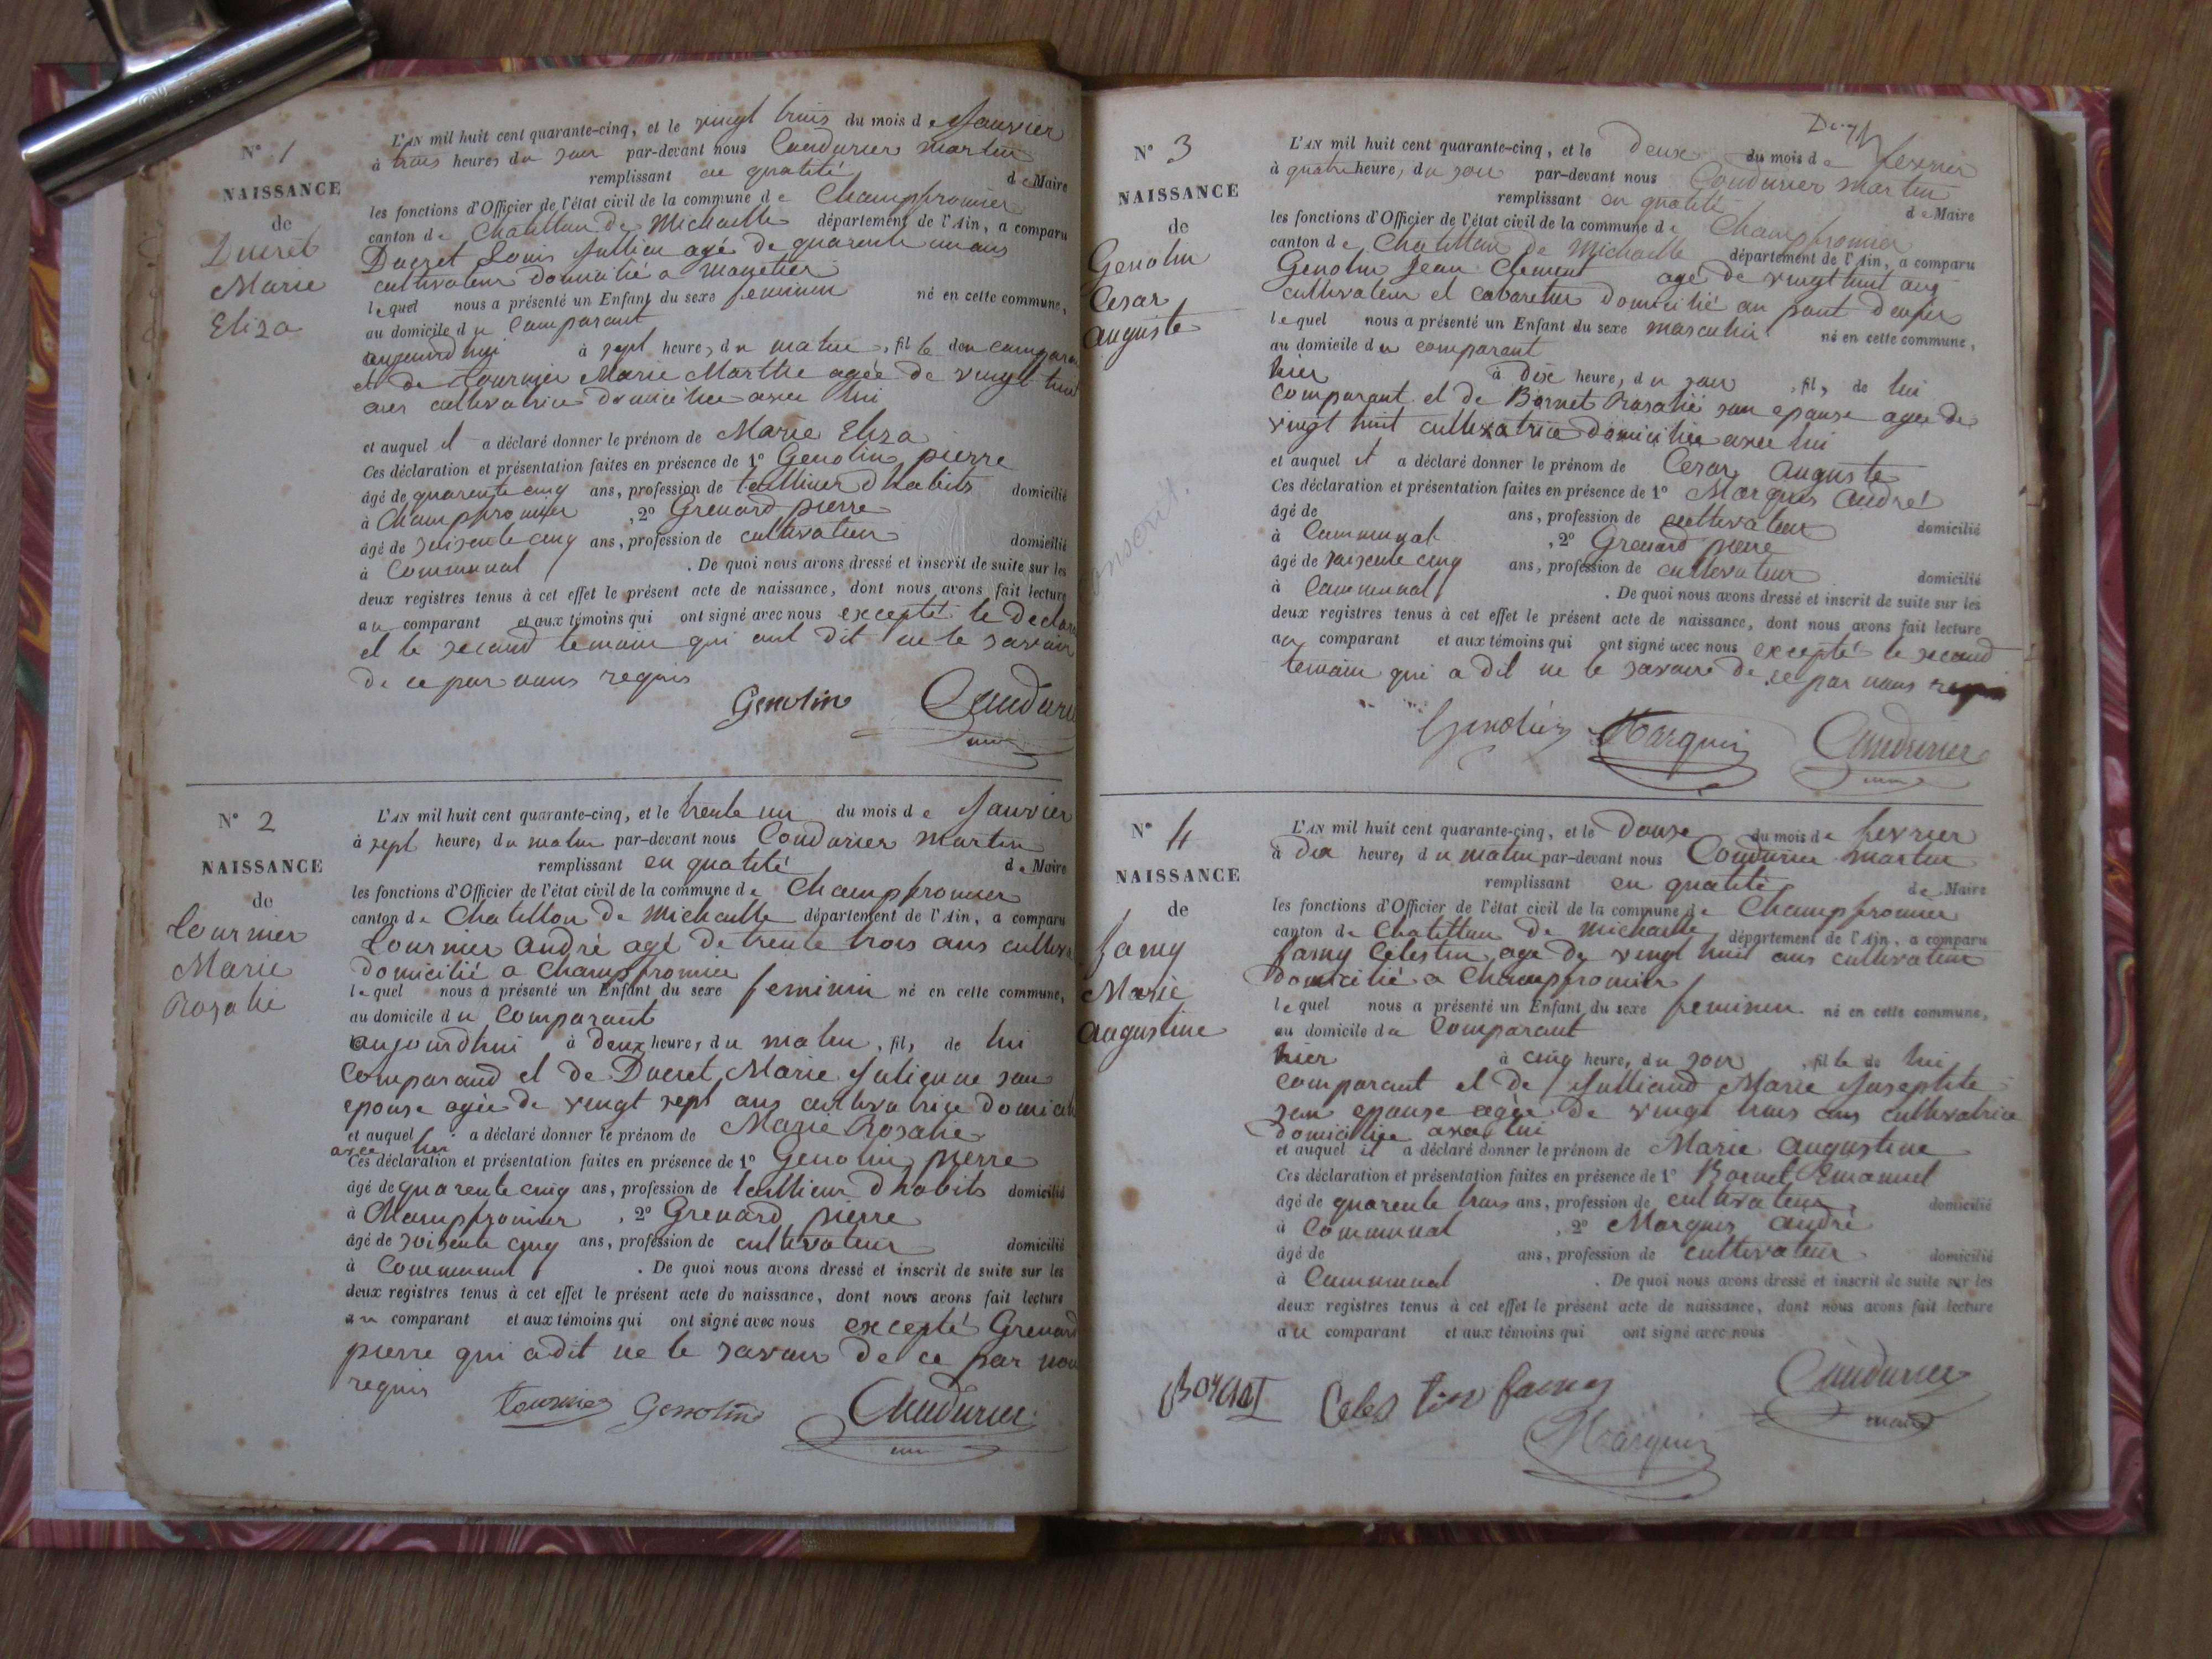 N° 1
NAISSANCE
de
Ducret
Marie
Eliza
L'AN mil huit cent quarante-cinq, et le vingt trois du mois de Janvier
à trois heures du soir par-devant nous Coudurier martin
remplissant en qualité de Maire
les fonctions d'Officier de l'état civil de la commune de Champfromier
canton de Chatillon de Michaille département de l'Ain, a comparu
Ducret Louis Jullien agé de quarente un ans
cultivateur domicilié a
lequel nous a présenté un Enfant du sexe feminin né en cette commune,
au domicile du Comparant
aujourd'hui à sept heures du matin, fille de
et de tournier Marie Marthe agée de vingt huit
ans cultivatrice domiciliee avec lui
et auquel il a déclaré donner le prénom de Marie Eliza
Ces déclaration et présentation faites en présence de 1° Genolin pierre
âgé de quarente cinq ans, profession de tailleur d habits domicilié
à Champfromier, 2° Grenard pierre
âgé de soisente cinq ans, profession de cultivateur domicilié
à Communal. De quoi nous avons dressé et inscrit de suite sur les
deux registres tenus à cet effet le présent acte de naissance, dont nous avons fait lecture
au comparant et aux témoins qui ont signé avec nous excepté le
et le second temoin qui ont dit ne le savoir
de ce par nous requis
Genolin Coudurier
N° 2
NAISSANCE
de
tournier
Marie
Rosalie
L'AN mil huit cent quarante-cinq, et le trente un du mois de Janvier
à sept heures du matin par-devant nous Coudurier martin
remplissant en qualité de Maire
les fonctions d'Officier de l'état civil de la commune de Champfromier
canton de Chatillon de Michaille département de l'Ain, a comparu
tournier andré agé de trente trois ans
domicilié a Champfromier
lequel nous a présenté un Enfant du sexe feminin né en cette commune,
au domicile du Comparant
aujourdhui à deux heures du matin, fils de lui
Comparand et de Ducret Marie Julienne son
epouse agée de vingt sept ans cultivatrice
et auquel il a déclaré donner le prénom de Marie Rosalie
avec lui
Ces déclaration et présentation faites en présence de 1° Genolin pierre
âgé de quarente cinq ans, profession de tailleur d habits domicilié
à Champfromier, 2° Grenard pierre
âgé de soisente cinq ans, profession de cultivateur domicilié
à Communal. De quoi nous avons dressé et inscrit de suite sur les
deux registres tenus à cet effet le présent acte de naissance, dont nous avons fait lecture
au comparant et aux témoins qui ont signé avec nous excepté Grenard
pierre qui a dit ne le savoir de ce par nous
requis
tournier Genolin Coudurier
N° 3
NAISSANCE
de
Genolin
Cesar
auguste
L'AN mil huit cent quarante-cinq, et le deux du mois de fevrier
à quatre heures du soir par-devant nous Coudurier martin
remplissant en qualité de Maire
les fonctions d'Officier de l'état civil de la commune de Champfromier
canton de Chatillon de Michaille département de l'Ain, a comparu
Genolin Jean Clement agé de vingt huit ans
cultivateur et cabaretier domicilié au pont denfer
lequel nous a présenté un Enfant du sexe masculin né en cette commune,
au domicile du comparant
hier à dix heures du soir, fils de lui
comparant et de Bornet Rosalie son epouse agée de
vingt huit cultivatrice domiciliée avec lui
et auquel il a déclaré donner le prénom de Cesar auguste
Ces déclaration et présentation faites en présence de 1° Marquis andré
âgé de ans, profession de cultivateur domicilié
à Communal, 2° Grenard pierre
âgé de soisente cinq ans, profession de cultivateur domicilié
à Communal. De quoi nous avons dressé et inscrit de suite sur les
deux registres tenus à cet effet le présent acte de naissance, dont nous avons fait lecture
au comparant et aux témoins qui ont signé avec nous excepté le second
temoin qui a dit ne le savoir de ce par nous
Genolin Marquis Coudurier
conscrit.
N° 4
NAISSANCE
de
famy
Marie
augustine
L'AN mil huit cent quarante-cinq, et le douse du mois de fevrier
à dix heures du matin par-devant nous Coudurier martin
remplissant en qualité de Maire
les fonctions d'Officier de l'état civil de la commune de Champfromier
canton de Chatillon de michaille département de l'Ain, a comparu
famy Celestin age de vingt huit ans cultivateur
domicilié a Champfromier
lequel nous a présenté un Enfant du sexe feminin né en cette commune,
au domicile du Comparant
hier à cinq heures du soir, fille de lui
comparant et de Julliand Marie Josephte
son epouse agée de vingt trois ans cultivatrice
domiciliee avec lui
et auquel il a déclaré donner le prénom de Marie augustine
Ces déclaration et présentation faites en présence de 1° Bornet Emanuel
âgé de quarente trois ans, profession de cultivateur domicilié
à Communal, 2° Marquis andré
âgé de ans, profession de cultivateur domicilié
à Communal. De quoi nous avons dressé et inscrit de suite sur les
deux registres tenus à cet effet le présent acte de naissance, dont nous avons fait lecture
au comparant et aux témoins qui ont signé avec nous
Bornet Celestin famy Coudurier
Marquis maire